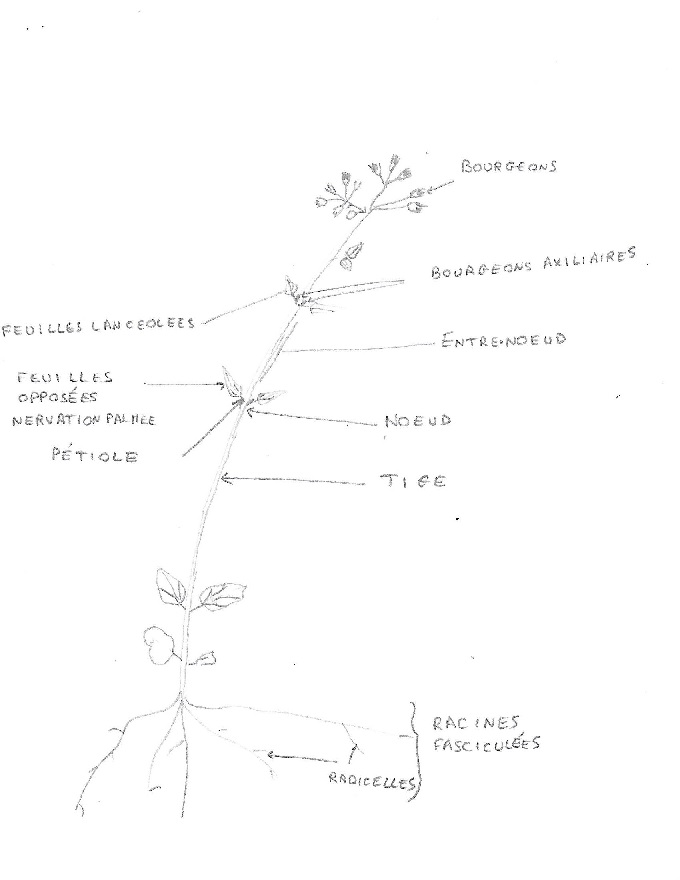 BOURGEONS
BOURGEONS AXILIAIRES
FEUILLES LANCEOLEES
ENTRE-NOEUD
FEUILLES
OPPOSÉES
NERVATION PALMEE
NOEUD
PÉTIOLE
TIGE
RACINES
FASCICULÉES
RADICELLES